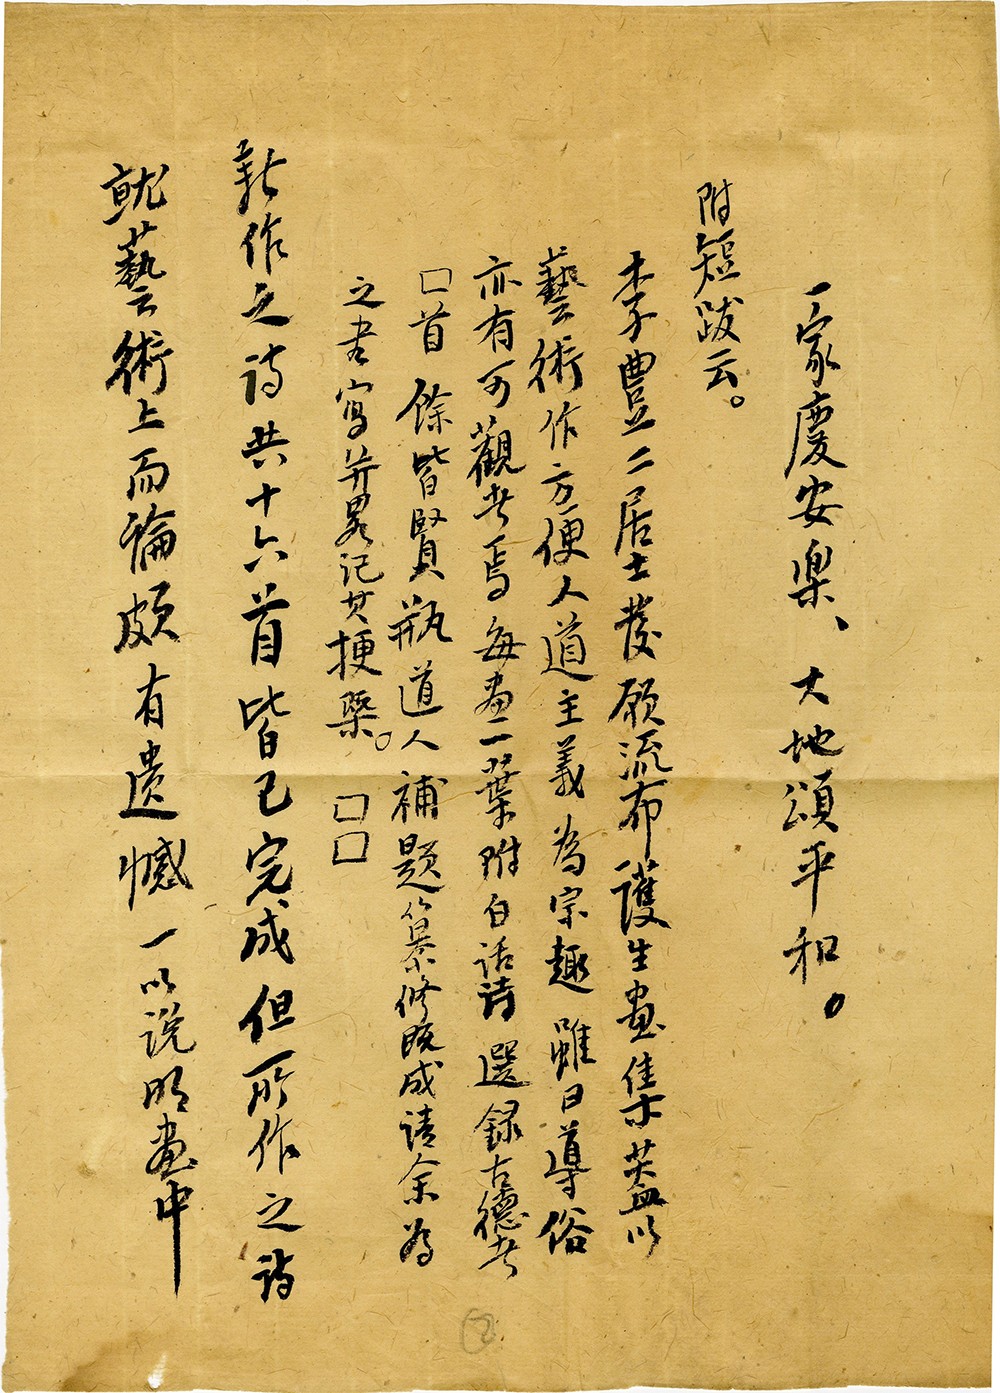 一家慶安樂、大地頌平和。
附短跋云。
李豐二居士發願流布護生畫集蓋以
藝術作方便人道主義為宗趣雖曰導俗
亦有可觀者焉每畫一葉附白話詩選錄古德者
□首餘皆賢瓶道人補題纂修既成請余為
之書寫并畧記其梗槩。 □□
新作之詩共十六首皆已完成但所作之詩
就藝術上而論頗有遺憾一以說明畫中
12